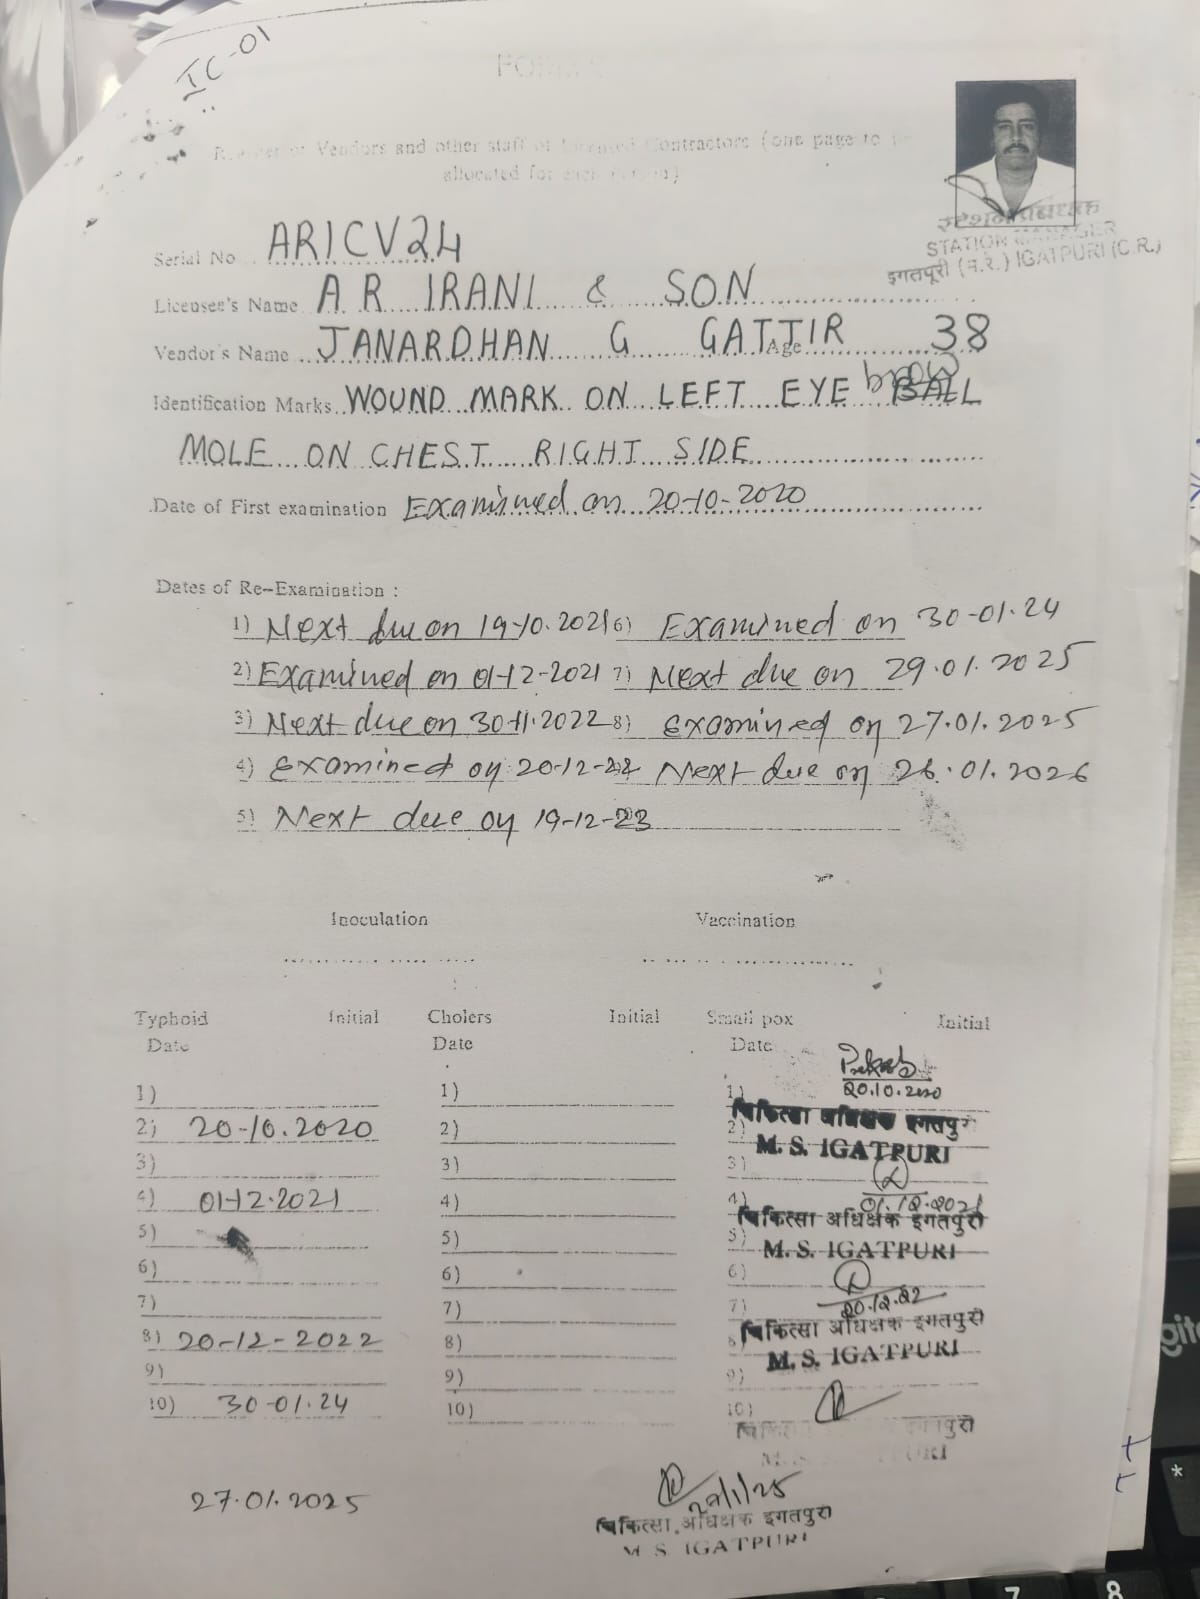 IC-01
FORM
Register of Vendors and other staff of Licensed Contractors (one page to be
allocated for each person)
स्टेशन प्रबंधक
STATION MANAGER
इगतपूरी (म.रे.) IGATPURI (C.R.)
Serial No ARICV24
Licensee's Name A R IRANI & SON
Vendor's Name JANARDHAN G GATTIR Age 38
Identification Marks WOUND MARK ON LEFT EYE brow BALL
MOLE ON CHEST RIGHT SIDE
Date of First examination Examined on 20-10-2020
Dates of Re-Examination :
1) Next due on 19-10.2021 6) Examined on 30-01.24
2) Examined on 01-12-2021 7) Next due on 29.01.2025
3) Next due on 30-11.2022 8) Examined on 27.01.2025
4) Examined on 20-12-22 Next due on 26.01.2026
5) Next due on 19-12-23
Inoculation Vaccination
Typhoid Initial Cholers Initial Small pox Initial
Date Date Date
1) 1) 1) 20.10.2020
चिकित्सा अधिक्षक इगतपुरी
2) 20-10.2020 2) 2)
M. S. IGATPURI
3) 3) 3)
4) 01-12-2021 4) 4) 01.12.2021
चिकित्सा अधिक्षक इगतपुरी
5) 5) 5)
M. S. IGATPURI
6) 6) 6)
7) 7) 7) 20.12.22
चिकित्सा अधिक्षक इगतपुरी
8) 20-12-2022 8) 8)
M. S. IGATPURI
9) 9) 9)
10) 30-01.24 10) 10)
इगतपुरी
27.01.2025
चिकित्सा अधिक्षक इगतपुरी
M S IGATPURI
*
7 8